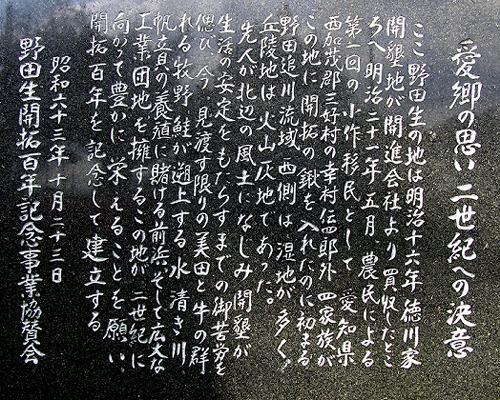 愛郷の思い 二世紀への決意
ここ野田生の地は明治十六年徳川家
開墾地が開進会社より買収したとこ
ろへ明治二十一年五月、農民による
第一回の小作移民として 愛知県
西加茂郡三好村の幸村伝四郎外 四家族が
この地に開拓の鍬を入れたのに初まる
野田追川流域 西側は 湿地が多く、
丘陵地は火山灰地であった。
先人が北辺の風土になじみ 開墾が
生活の安定をもたらすまでの御苦労を
偲び 今 見渡す限りの美田と牛の群
れる牧野 鮭が遡上する 水清き川
帆立貝の養殖に賭ける前浜、そして広大な
工業団地を擁するこの地が 二世紀に
向かって豊かに 栄えることを願い、
開拓百年を記念して 建立する
昭和六十三年十月二十三日
野田生開拓百年記念事業協賛会